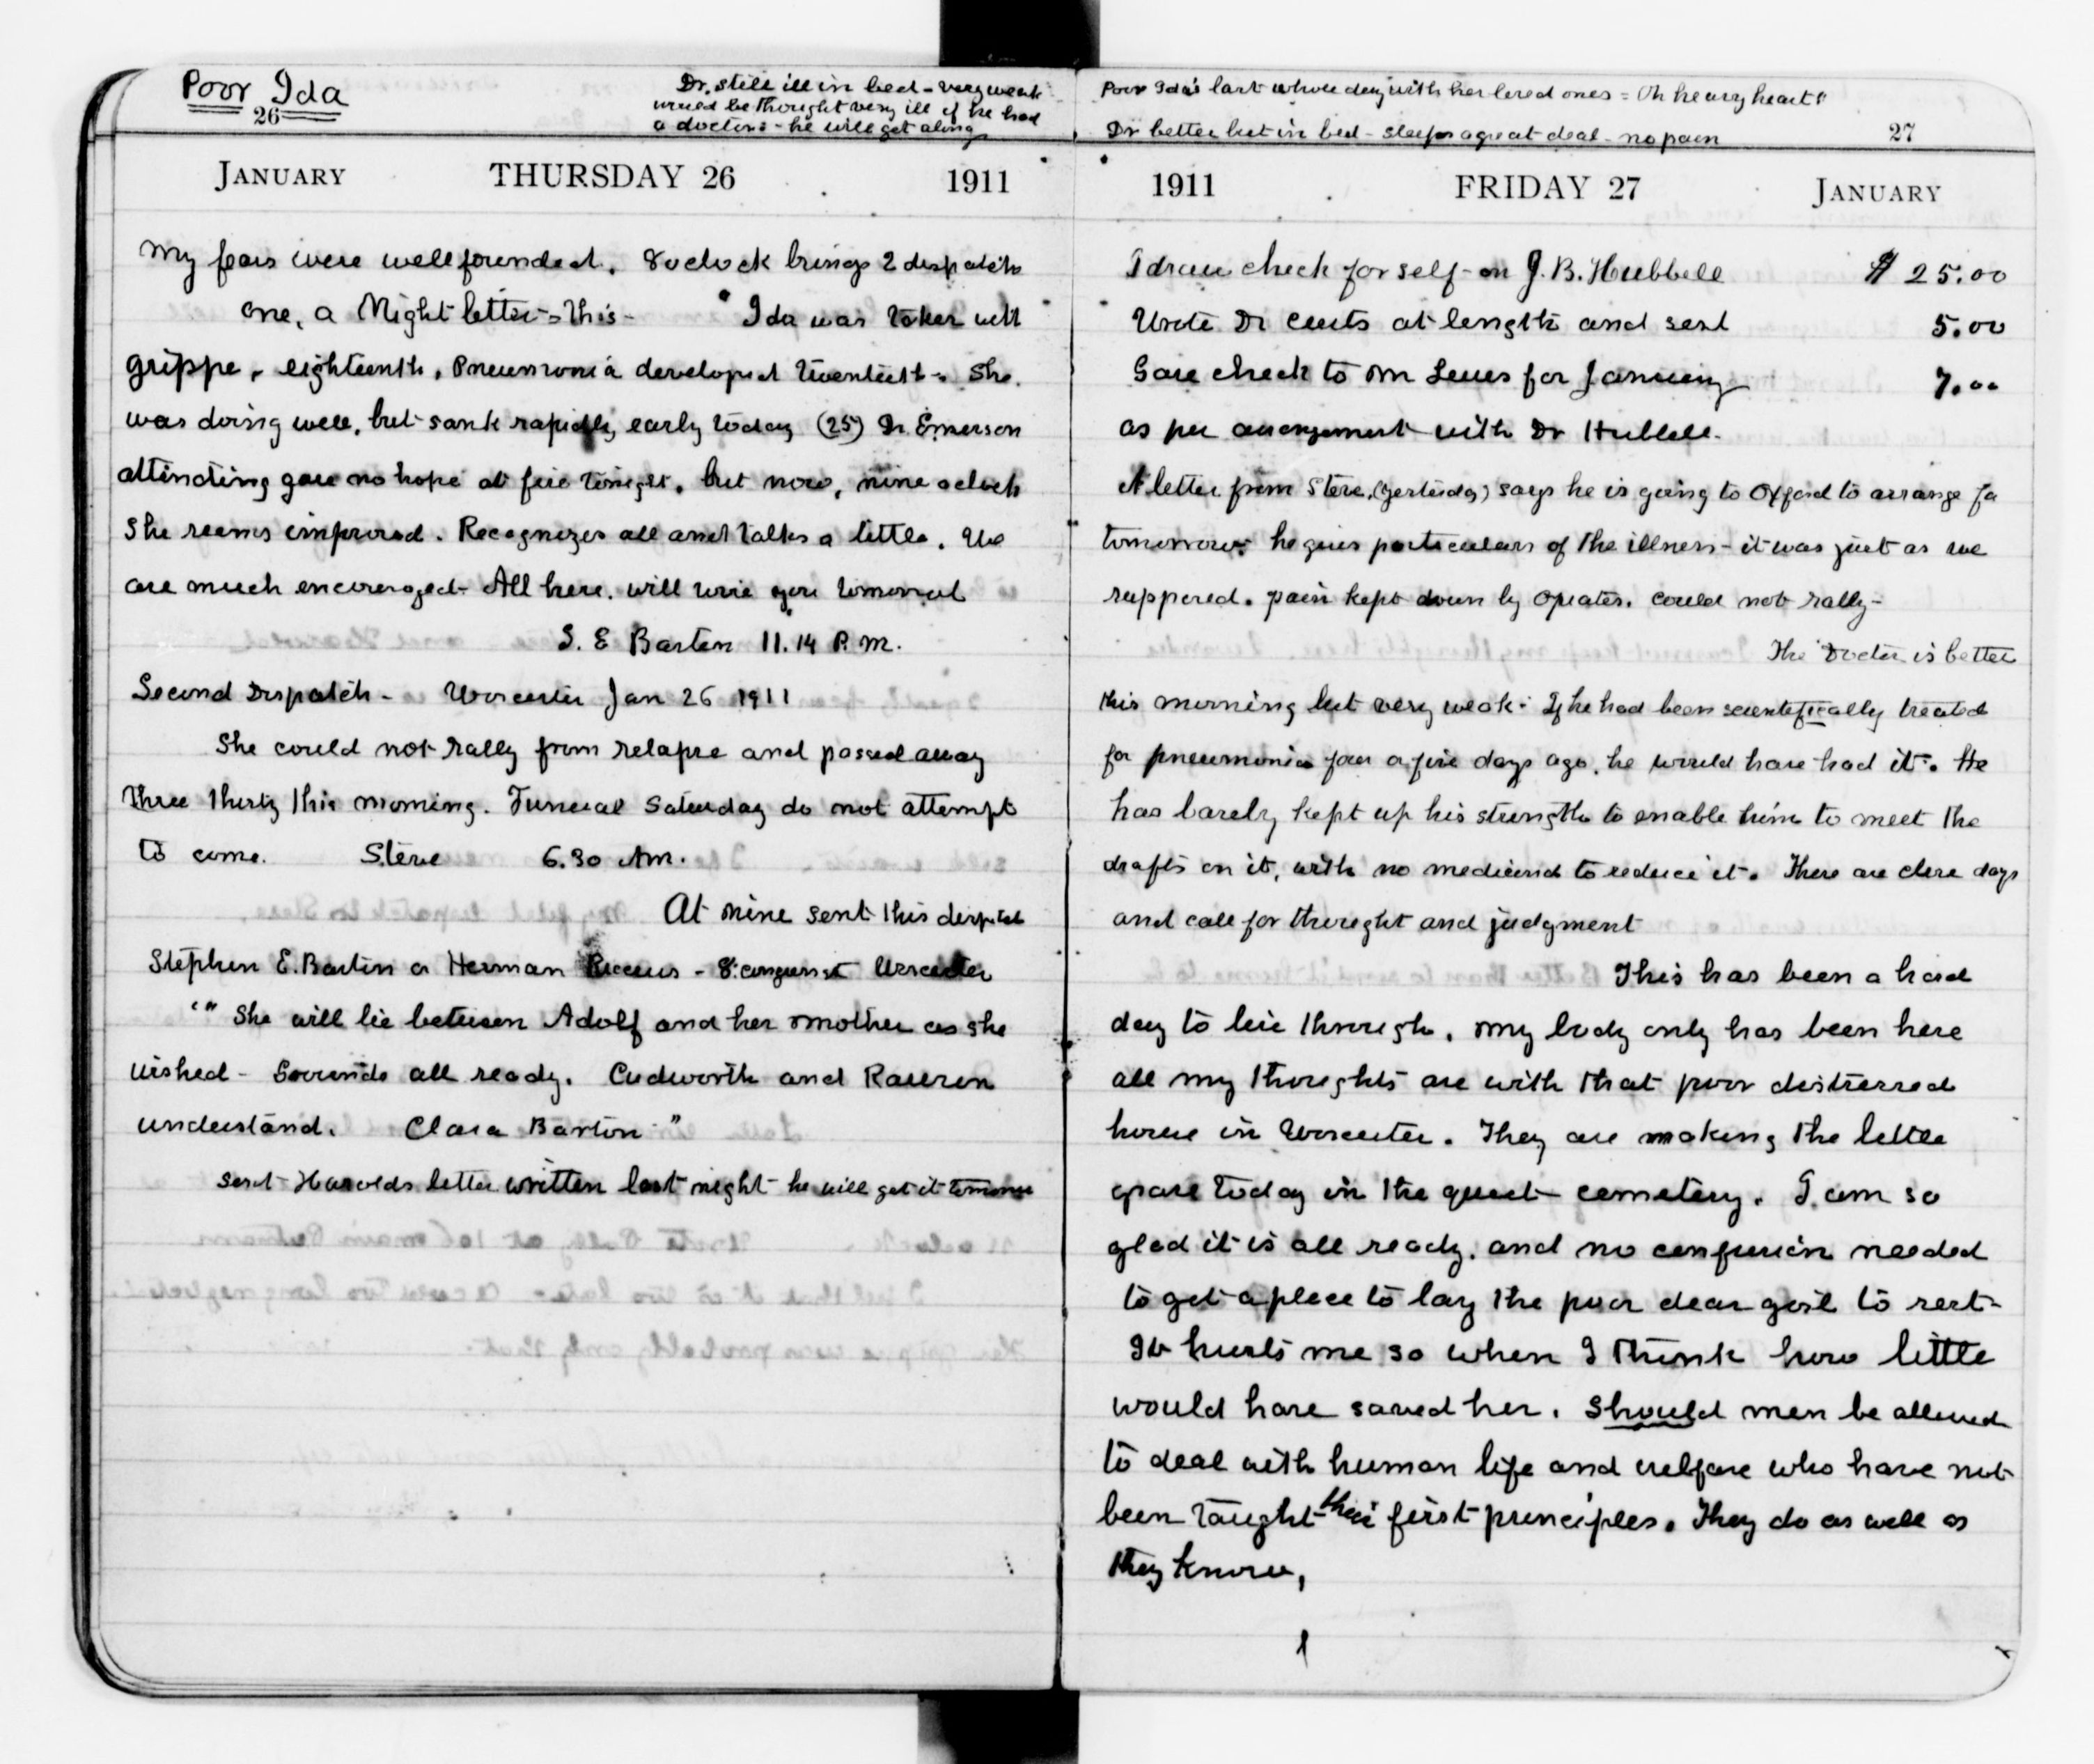 Poor Ida
26
Dr. still ill in bed - very weak
would be thought very ill if he had
a doctor - he will get along
JANUARY THURSDAY 26 1911
My fears were well founded. 8 oclock brings 2 dispatch
one, a Night letter - this - " Ida was taken with
grippe, eighteenth, Pneumonia developed twentieth - She
was doing well, but sank rapidly early today (25) Dr Emerson
attending gave no hope at five tonight, but now, nine oclock
she seems improved. Recognizes all and talks a little. We
are much encouraged - All here. will wire you tomorrow
S. E Barton 11.14 P.M.
Second Dispatch - Worcester Jan 26 1911
She could not rally from relapse and passed away
three thirty this morning. Funeral Saturday do not attempt
to come. Steve 6.30 AM.
At nine sent this dispatch
Stephen E. Barton or Herman Riccius - Worcester
"" She will lie between Adolf and her mother as she
wished - Grounds all ready. Cudworth and Rawson
understand. Clara Barton "
Sent Harolds letter written last night - he will get it tomorrow
Poor Ida's last whole day with her loved ones = Oh heavy heart"
Dr better but in bed - sleeps a great deal - no pain
27
1911 FRIDAY 27 JANUARY
I draw check for self - on J. B. Hubbell $ 25.00
Wrote Dr at length and sent 5.00
Gave check to Mr Lewis for January 7.00
as per arrangement with Dr Hubbell.
A letter from Steve, (yesterday) says he is going to Oxford to arrange for
tomorrow: he gives particulars of the illness - it was just as we
supposed. pain kept down by opiates. could not rally -
The Doctor is better
this morning but very weak - If he had been scientifically treated
for pneumonia four or five days ago, he would have had it. He
has barely kept up his strength to enable him to meet the
drafts on it, with no medicine to reduce it. There are days
and call for thought and judgment
This has been a hard
day to live through. My body only has been here
all my thoughts are with that poor distressed
house in Worcester. They are making the little
grave today in the quiet cemetery. I am so
glad it is all ready, and no confusion needed
to get a place to lay the poor dear girl to rest -
It hurts me so when I think how little
would have saved her. Should men be allowed
to deal with human life and welfare who have not
been taught their first principles. They do as well as
they know,